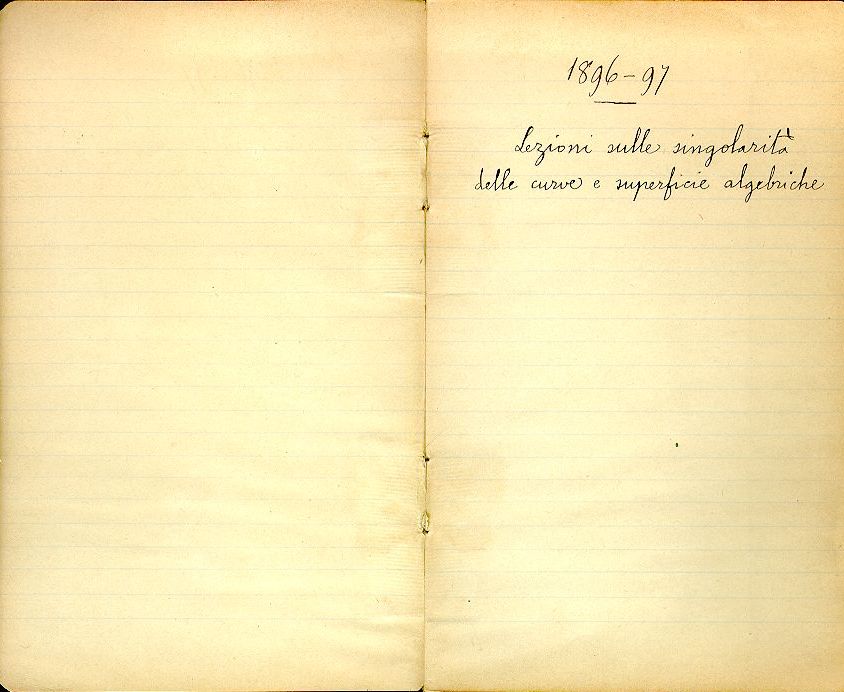 1896-97
Lezioni sulle singolarità
delle curve e superficie algebriche